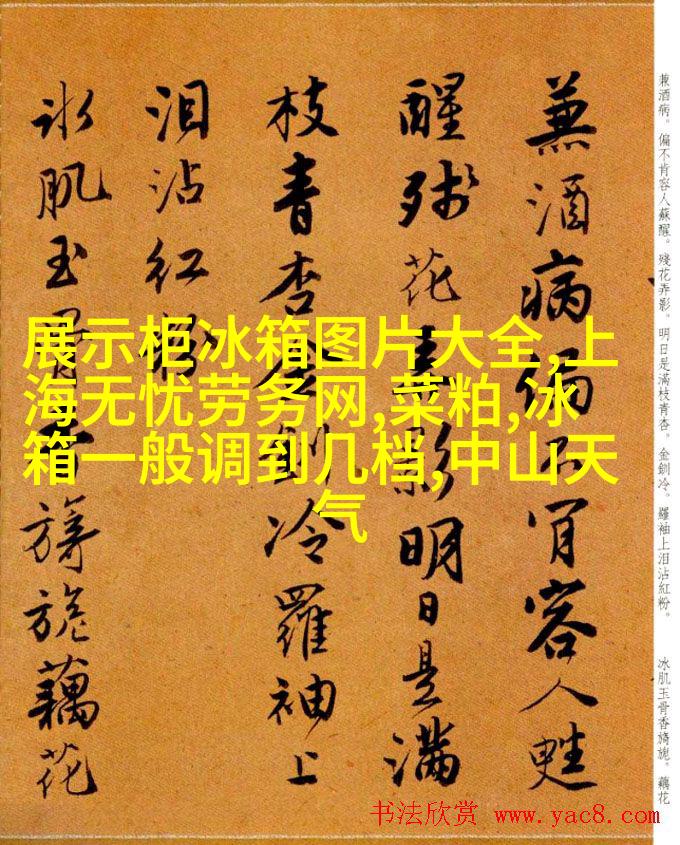 展示柜冰箱图片大全,上
海无忧劳务网,菜粕,冰
箱一般调到几档,中山天
气
兼酒病偏不肯容人甦
醒殘花弄影明日是滿
枝青杏金釧冷羅袖上
泪沾紅粉
冰肌玉骨香旖旎藕花
兼酒病。偏不肯容人蘇醒。殘花弄影。明日是滿枝青杏。金釧冷。羅袖上泪沾紅粉。
冰肌玉骨香旖旎。藕花
书法欣赏 www.yac8.com